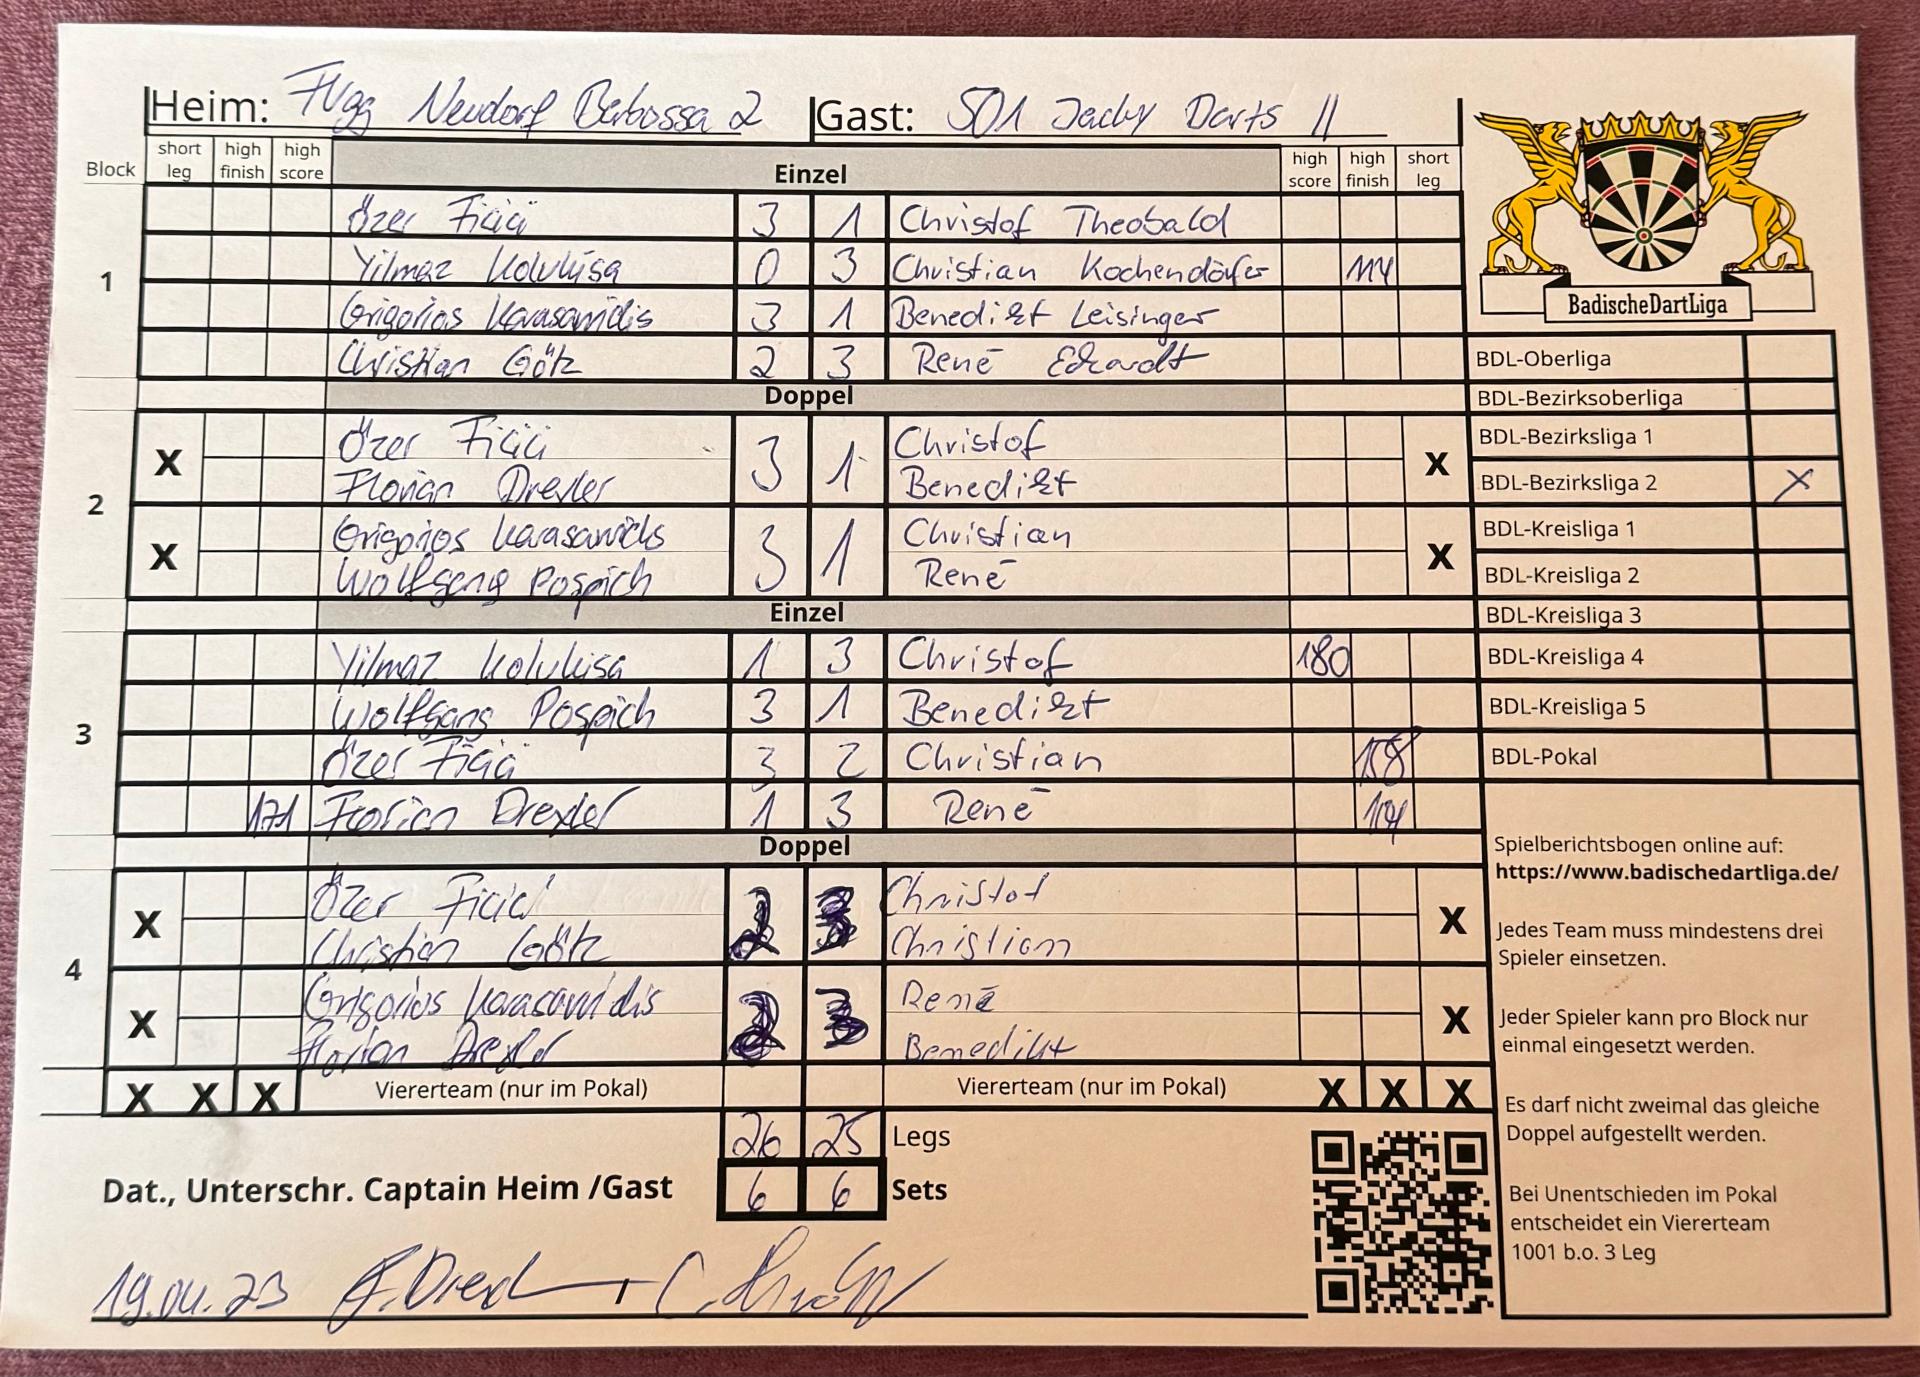 Heim: FVgg Neudorf Barbossa 2 Gast: 501 Jacky Darts II
Block short leg high finish high score Einzel high score high finish short leg
1
Özer Ficici 3 1 Christof Theobald
Yilmaz Kolukisa 0 3 Christian Kochendörfer 114
Grigorios Karasavidis 3 1 Benedikt Leisinger
Christian Götz 2 3 René Eckardt
Doppel
2
X Özer Ficici 3 1 Christof X
Florian Drexler Benedikt
X Grigorios Karasavidis 3 1 Christian X
Wolfgang Pospich René
Einzel
3
Yilmaz Kolukisa 1 3 Christof 180
Wolfgang Pospich 3 1 Benedikt
Özer Ficici 3 2 Christian 158
171 Florian Drexler 1 3 René
Doppel
4
X Özer Ficici 2 3 Christof X
Christian Götz Christian
X Grigorios Karasavidis 2 3 René X
Florian Drexler Benedikt
X X X Viererteam (nur im Pokal) Viererteam (nur im Pokal) X X X
26 25 Legs
Dat., Unterschr. Captain Heim /Gast 6 6 Sets
19.04.23 F. Drexl
BadischeDartLiga
BDL-Oberliga
BDL-Bezirksoberliga
BDL-Bezirksliga 1
BDL-Bezirksliga 2 X
BDL-Kreisliga 1
BDL-Kreisliga 2
BDL-Kreisliga 3
BDL-Kreisliga 4
BDL-Kreisliga 5
BDL-Pokal
Spielberichtsbogen online auf:
https://www.badischedartliga.de/
Jedes Team muss mindestens drei
Spieler einsetzen.
Jeder Spieler kann pro Block nur
einmal eingesetzt werden.
Es darf nicht zweimal das gleiche
Doppel aufgestellt werden.
Bei Unentschieden im Pokal
entscheidet ein Viererteam
1001 b.o. 3 Leg